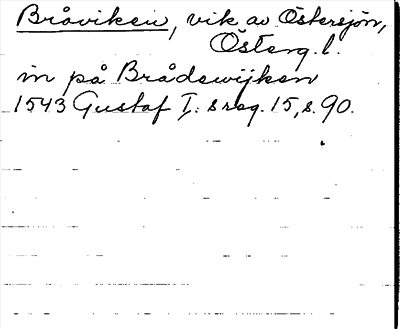 Bråviken, vik av Östersjön,
Österg. l.
in på Brådewijken
1543 Gustaf I: s reg. 15, s. 90.